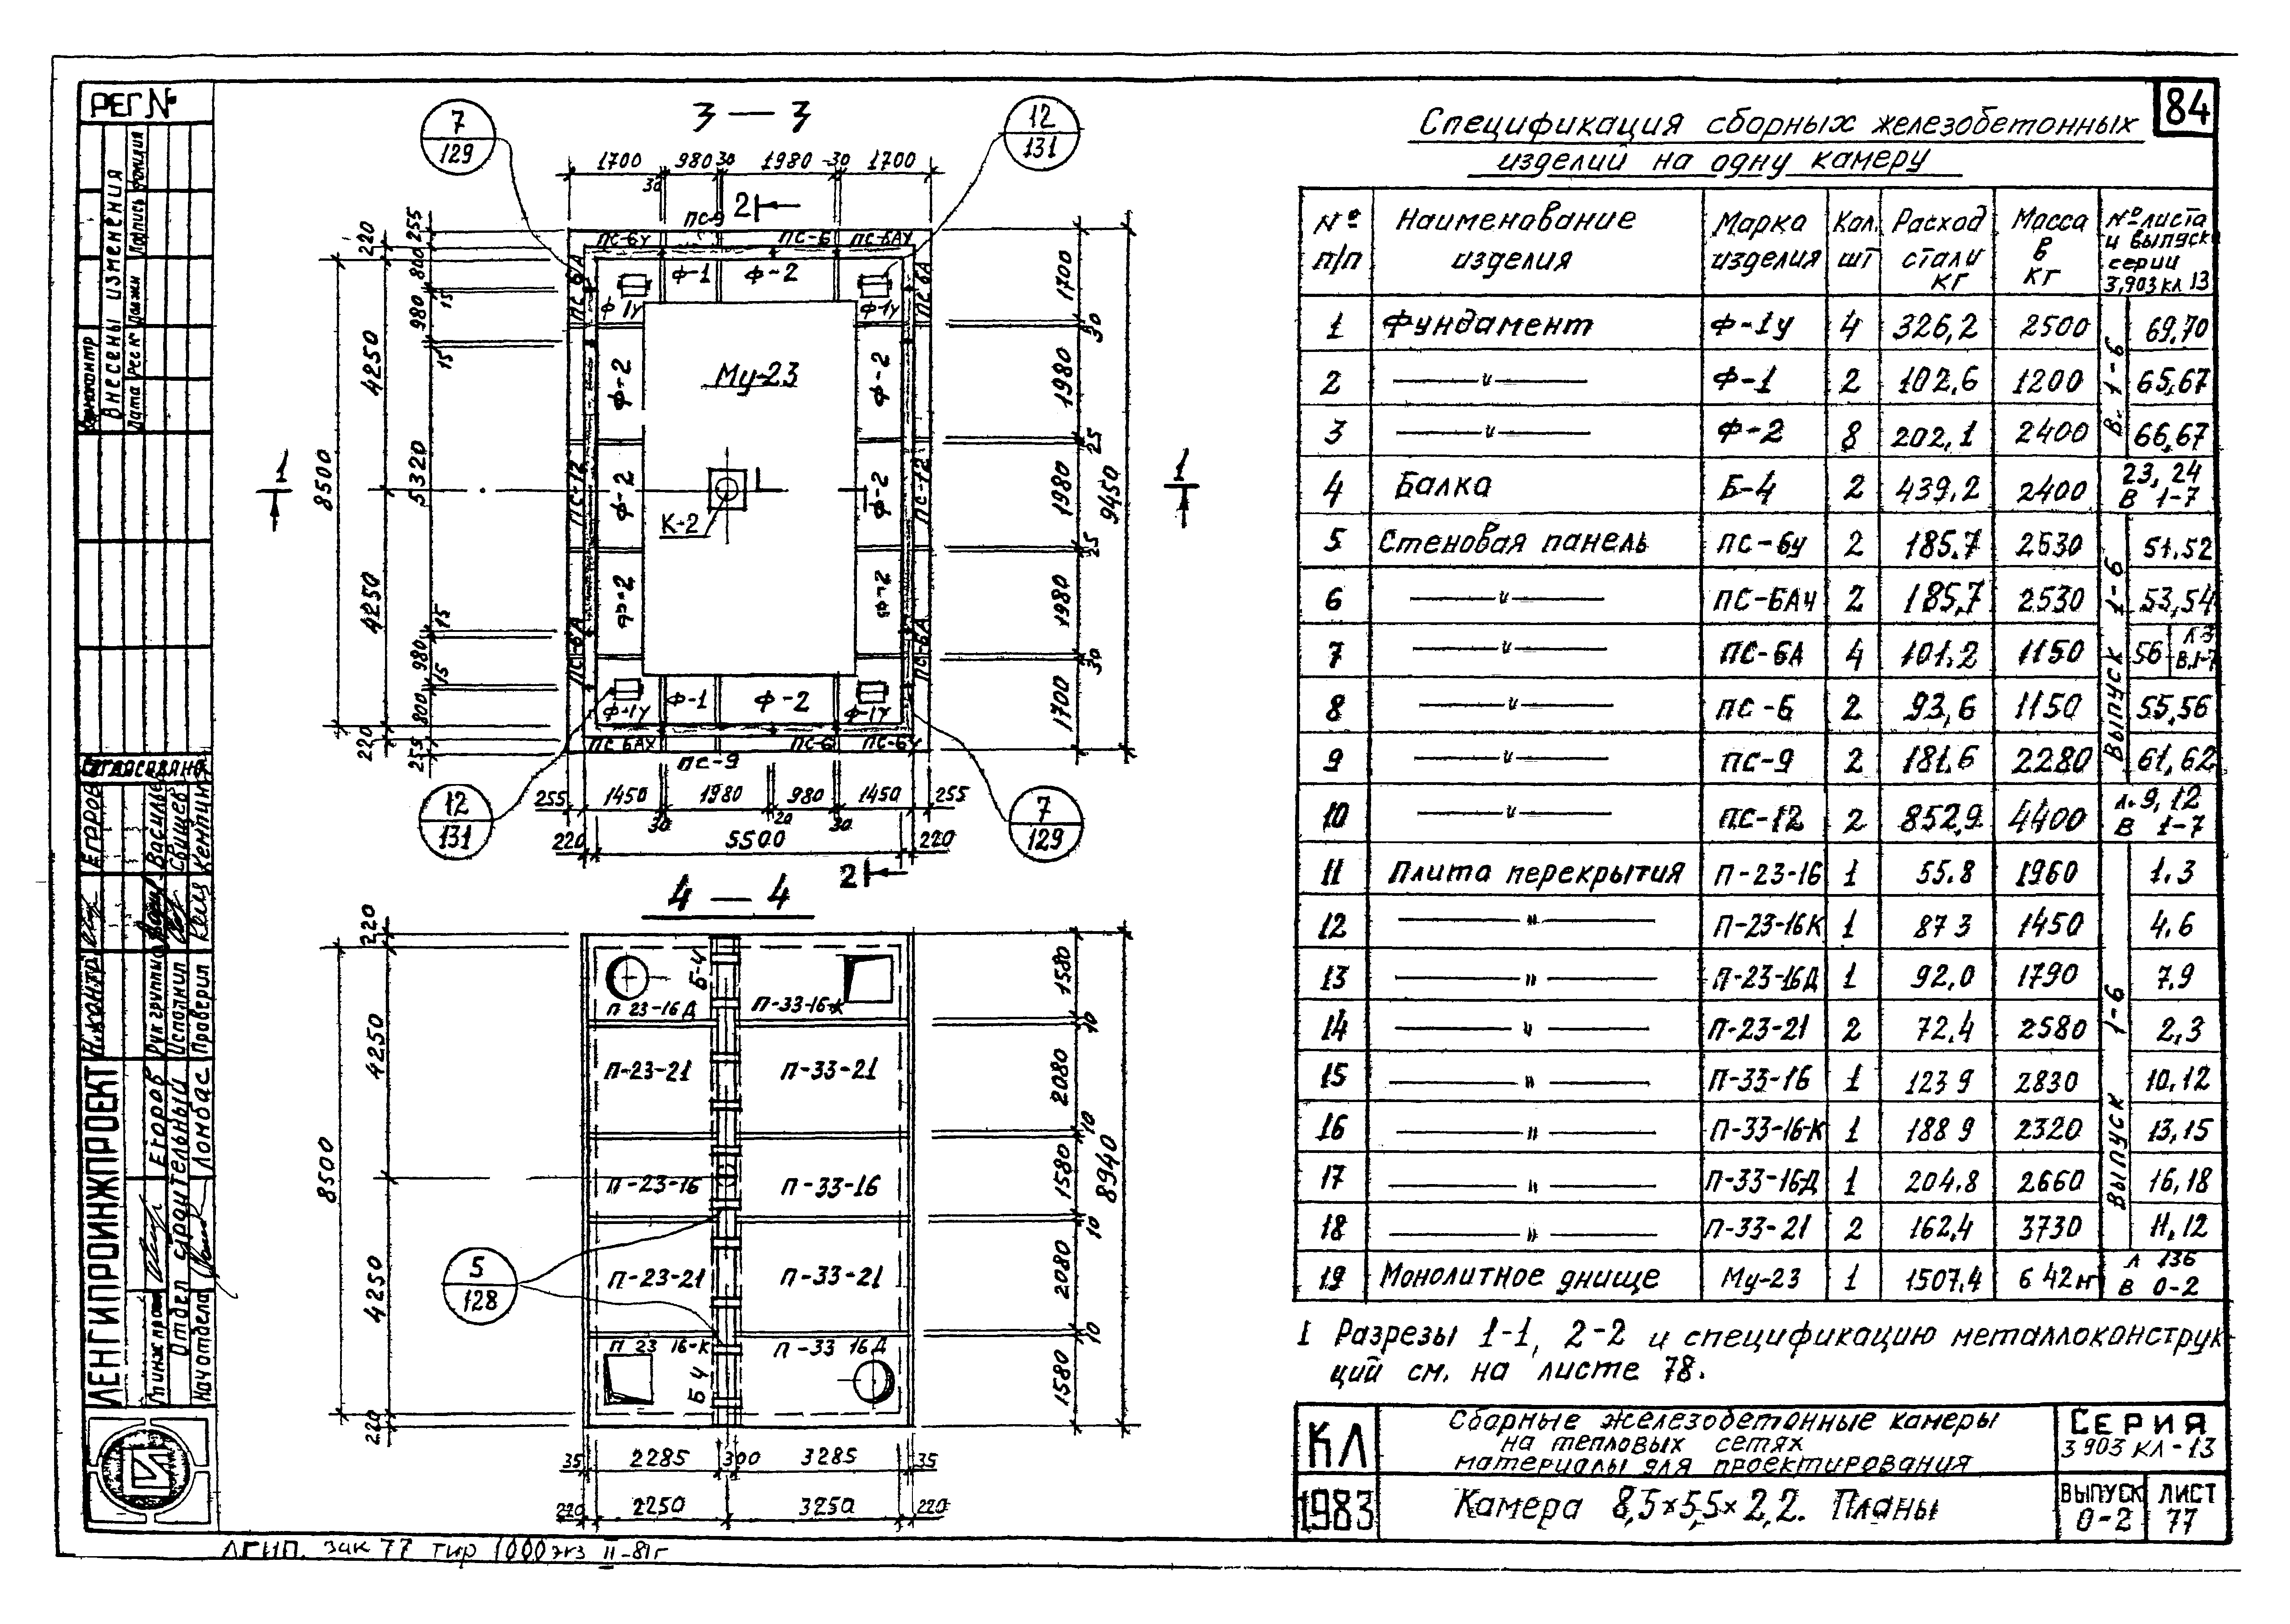 84
РЕГ №
3 — 3
7
129
12
131
1700 980 30 1980 30 1700
30
2
ПС-9
ПС-6У ПС-6 ПС-6АУ
Ф-1 Ф-2
Ф-1У Ф-1У
ПС-6А ПС-6А
Ф-2 Ф-2
Му-23
ПС-12 Ф-2 Ф-2 ПС-12
К-2
1 1
Ф-2 Ф-2
ПС-6А ПС-6А
Ф-1 Ф-2
Ф-1У Ф-1У
ПС-6АУ ПС-6 ПС-6У
ПС-9
220 255
800
15
980
15
4250
8500 5320
4250
15
980
15
800
220 255
1700
30
1980
25
1980
9450
25
1980
30
1700
255 1450 1980 980 1450 255
30 20 30
220 5500 220
12
131
7
129
2
4 — 4
220
4250
8500
4250
220
Б-4
П 23-16Д П-33-16-К
П-23-21 П-33-21
П-23-16 П-33-16
П-23-21 П-33-21
П 23 16-К П-33 16Д
Б 4
5
128
1580
10
2080
10
1580
8940
10
2080
10
1580
35 2285 300 3285 35
220 2250 3250 220
Спецификация сборных железобетонных
изделий на одну камеру
№ п/п Наименование изделия Марка изделия Кол. шт Расход стали кг Масса в кг № листа и выпуска серии 3,903 кл 13
1 Фундамент Ф-1у 4 326,2 2500 69,70
2 —〃— Ф-1 2 102,6 1200 65,67
3 —〃— Ф-2 8 202,1 2400 66,67
В. 1-6
4 Балка Б-4 2 439,2 2400 23, 24 В 1-7
5 Стеновая панель ПС-6у 2 185.7 2530 51.52
6 —〃— ПС-6АУ 2 185,7 2530 53,54
7 —〃— ПС-6А 4 101.2 1150 56 Л-3 В.1-7
8 —〃— ПС-6 2 93,6 1150 55,56
9 —〃— ПС-9 2 181.6 2280 61,62
Выпуск 1-6
10 —〃— ПС-12 2 852,9 4400 л. 9, 12 В 1-7
11 Плита перекрытия П-23-16 1 55.8 1960 1.3
12 —〃— П-23-16К 1 87 3 1450 4,6
13 —〃— П-23-16Д 1 92,0 1790 7,9
14 —〃— П-23-21 2 72,4 2580 2,3
15 —〃— П-33-16 1 123 9 2830 10,12
16 —〃— П-33-16-К 1 188 9 2320 13,15
17 —〃— П-33-16Д 1 204.8 2660 16,18
18 —〃— П-33-21 2 162,4 3730 11,12
Выпуск 1-6
19 Монолитное днище Му-23 1 1507.4 6 42м³ Л 136 В 0-2
1 Разрезы 1-1, 2-2 и спецификацию металлоконструк
ций см. на листе 78.
КЛ
1983
Сборные железобетонные камеры
на тепловых сетях
материалы для проектирования
Камера 8,5×5,5×2,2. Планы
Серия
3 903 КЛ-13
Выпуск
0-2
Лист
77
Внесены изменения
Дата Рег № Должн Подпись Фамилия
Согласовано
Н.контр Егоров
Рук группы
Исполнил Свищев
Проверил
ЛЕНГИПРОИНЖПРОЕКТ
Гл инж проект Егоров
Отдел строительный
Нач отдела Ломбас
ЛГИП. зак 77 тир 1000 экз II-81г